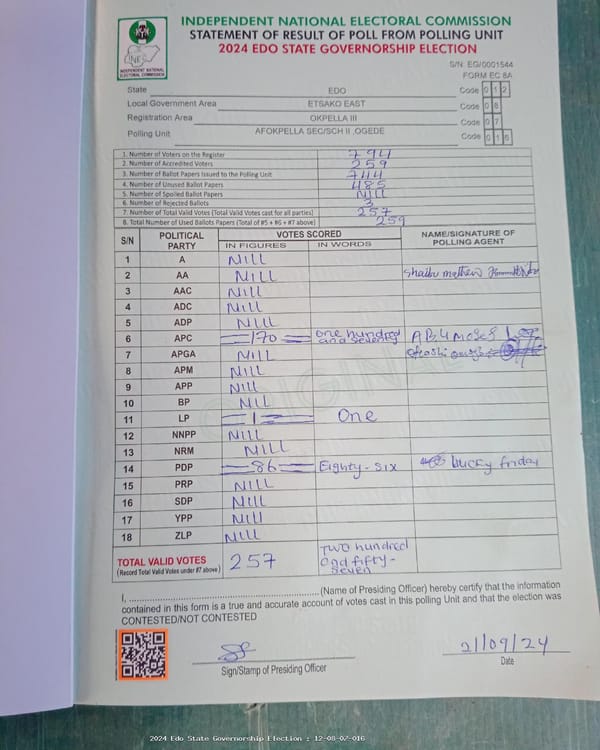 INDEPENDENT NATIONAL ELECTORAL COMMISSION
STATEMENT OF RESULT OF POLL FROM POLLING UNIT
2024 EDO STATE GOVERNORSHIP ELECTION
INEC
INDEPENDENT NATIONAL ELECTORAL COMMISSION
S/N EG/0001544
FORM EC 8A
State EDO Code 0 1 2
Local Government Area ETSAKO EAST Code 0 8
Registration Area OKPELLA III Code 0 7
Polling Unit AFOKPELLA SEC/SCH II ,OGEDE Code 0 1 6
1. Number of Voters on the Register 794
2. Number of Accredited Voters 259
3. Number of Ballot Papers Issued to the Polling Unit 744
4. Number of Unused Ballot Papers 485
5. Number of Spoiled Ballot Papers NILL
6. Number of Rejected Ballots 3
7. Number of Total Valid Votes (Total Valid Votes cast for all parties) 257
8. Total Number of Used Ballots Papers (Total of #5 + #6 + #7 above) 259
S/N POLITICAL PARTY VOTES SCORED NAME/SIGNATURE OF POLLING AGENT
IN FIGURES IN WORDS
1 A NILL
2 AA NILL Shaibu mathew
3 AAC NILL
4 ADC NILL
5 ADP NILL
6 APC 170 one hundred and seventy ABU moses
7 APGA NILL
8 APM NILL
9 APP NILL
10 BP NIL
11 LP 1 One
12 NNPP NILL
13 NRM NILL
14 PDP 86 Eighty-six lucky friday
15 PRP NILL
16 SDP NILL
17 YPP NILL
18 ZLP NILL
TOTAL VALID VOTES 257 Two hundred and fifty-seven
(Record Total Valid Votes under #7 above)
I, ..........(Name of Presiding Officer) hereby certify that the information
contained in this form is a true and accurate account of votes cast in this polling Unit and that the election was
CONTESTED/NOT CONTESTED
Sign/Stamp of Presiding Officer
21/09/24
Date
2024 Edo State Governorship Election : 12-08-07-016